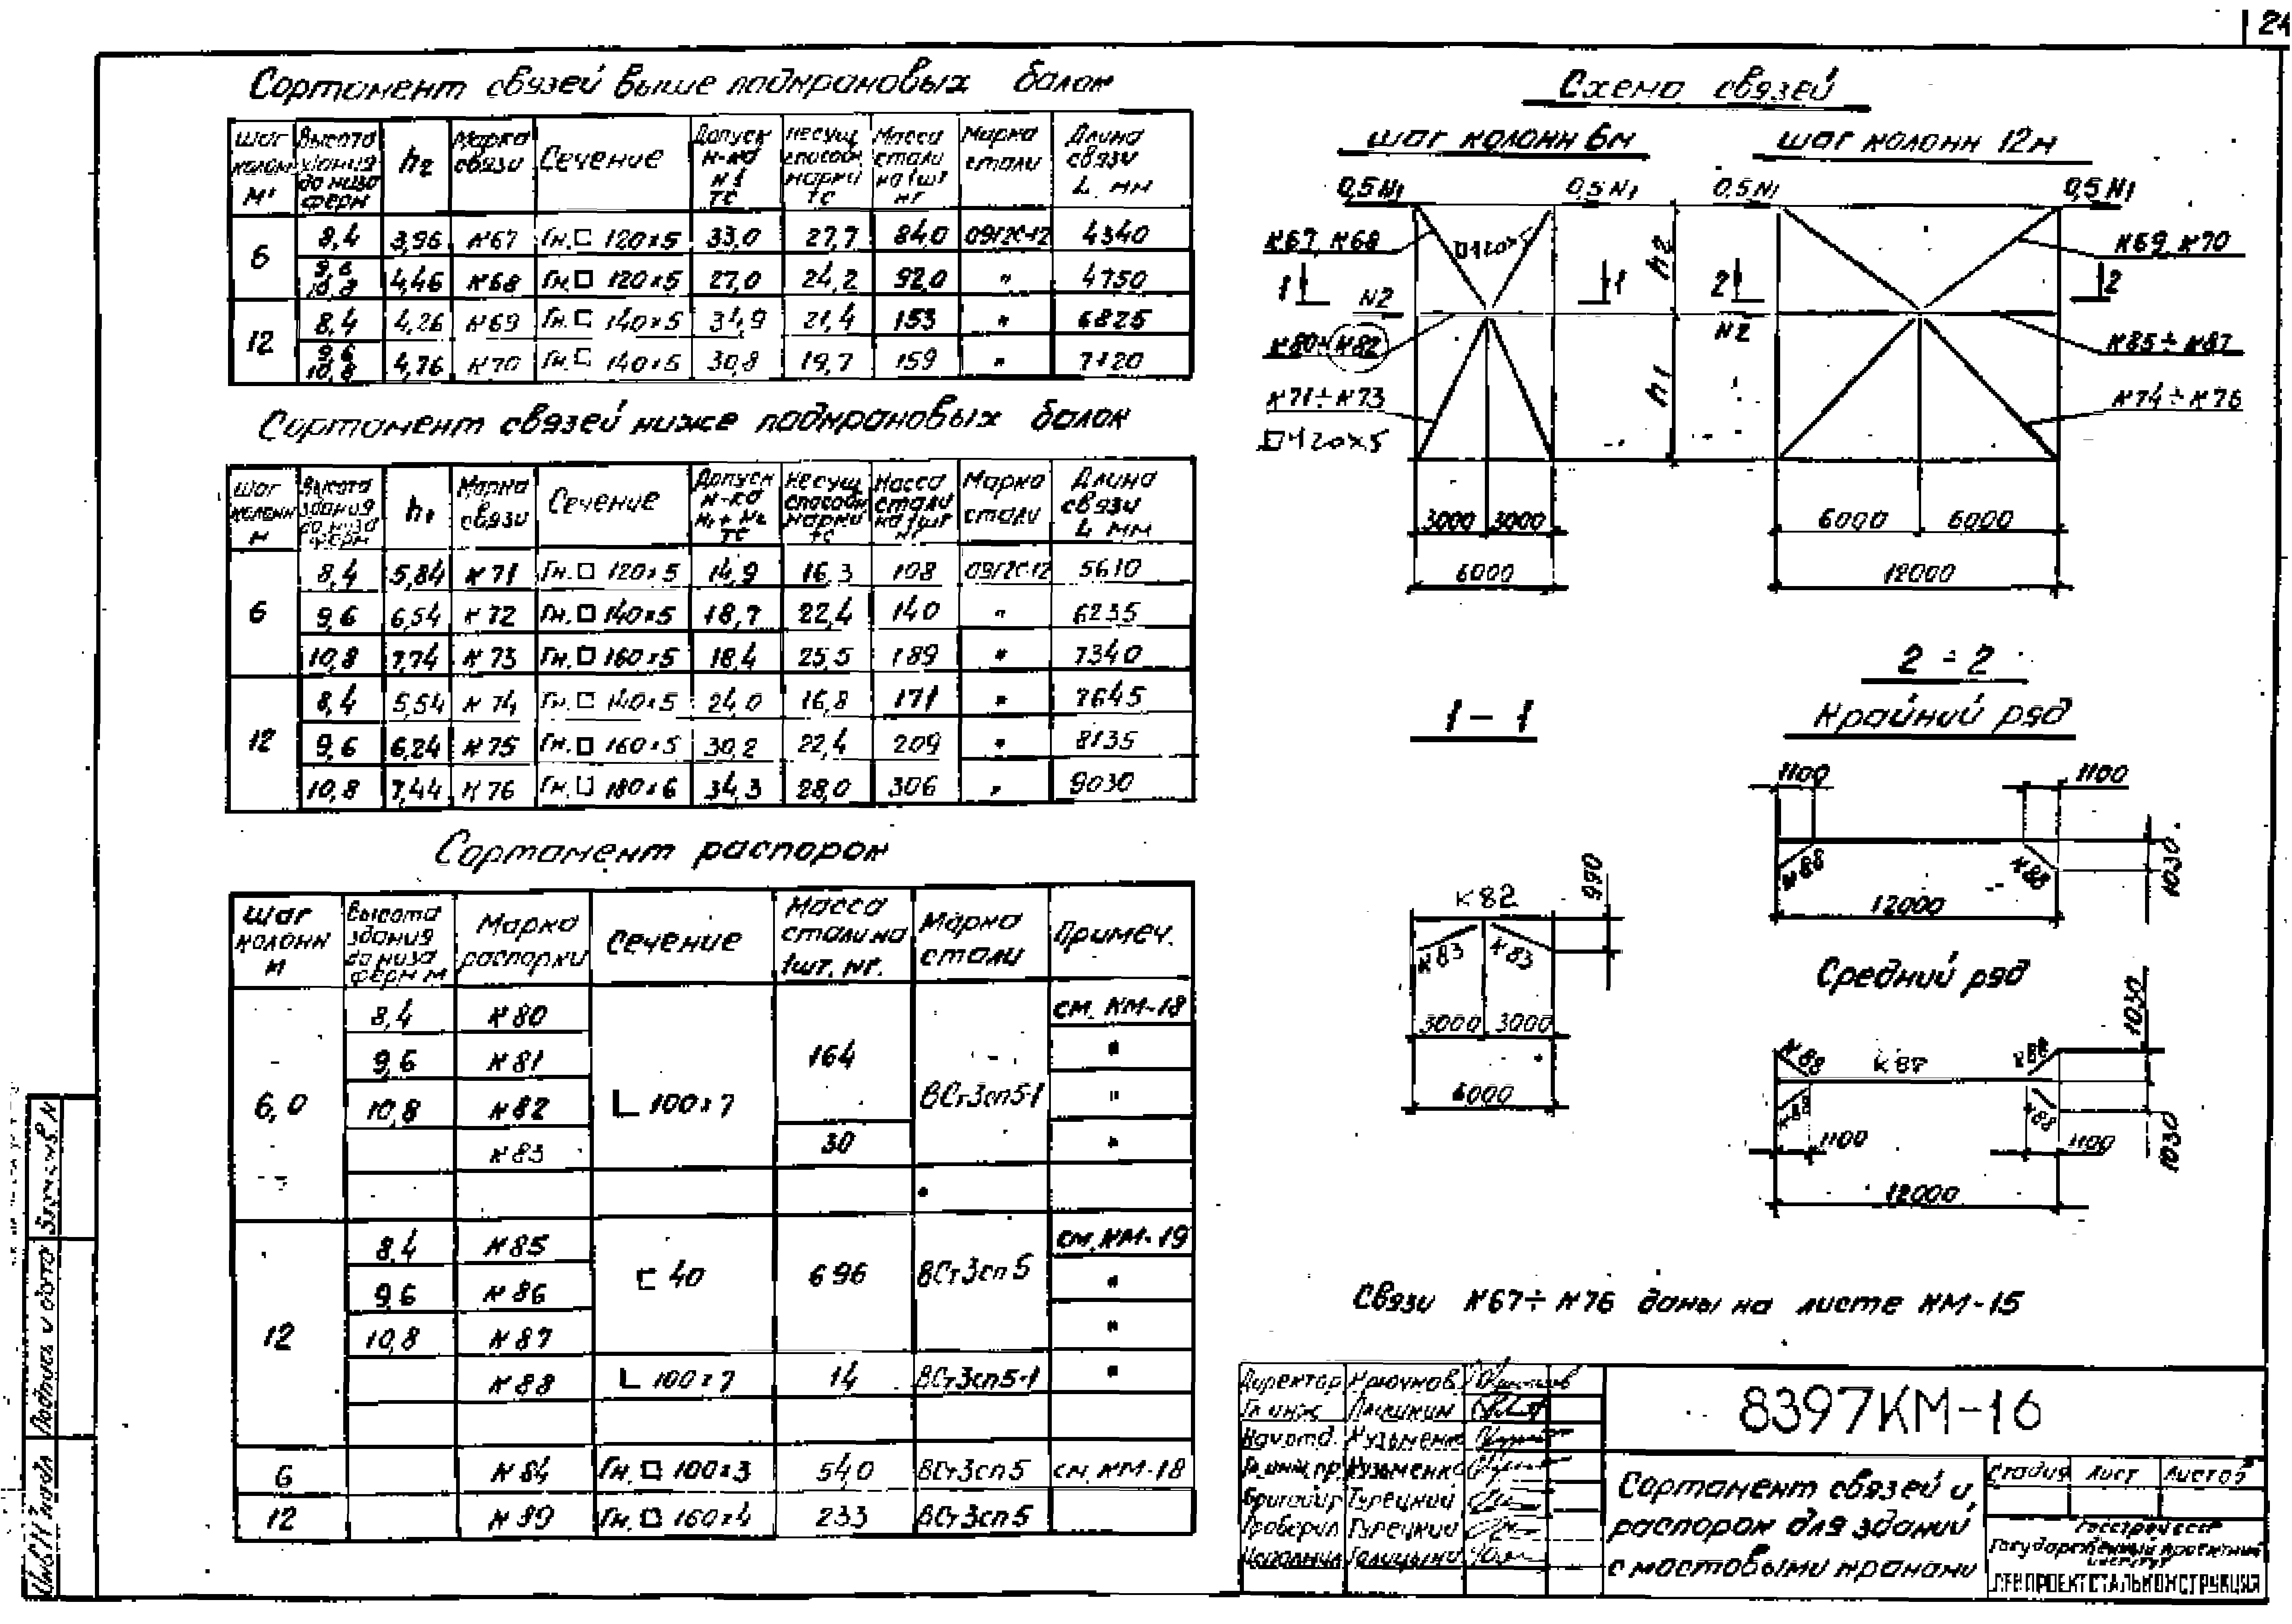 24
Сортамент связей выше подкрановых балок
Шаг колонн м | Высота здания до низа ферм | h2 | Марка связи | Сечение | Допуск н-ка N1 тс | Несущ. способн. марки тс | Масса стали на 1шт кг | Марка стали | Длина связи L мм
6 | 8,4 | 3,96 | К67 | Гн.□ 120×5 | 33,0 | 27,7 | 84,0 | 09Г2С-12 | 4340
9,6 10,8 | 4,46 | К68 | Гн.□ 120×5 | 27,0 | 24,2 | 92,0 | " | 4750
12 | 8,4 | 4,26 | К69 | Гн.□ 140×5 | 34,9 | 21,4 | 153 | " | 6825
9,6 10,8 | 4,76 | К70 | Гн.□ 140×5 | 30,8 | 19,7 | 159 | " | 7120
Сортамент связей ниже подкрановых балок
Шаг колонн м | Высота здания до низа ферм | h1 | Марка связи | Сечение | Допуск н-ка N1+N2 тс | Несущ. способн. марки тс | Масса стали на 1шт кг | Марка стали | Длина связи L мм
6 | 8,4 | 5,84 | К71 | Гн.□ 120×5 | 14,9 | 16,3 | 108 | 09Г2С-12 | 5610
9,6 | 6,54 | К72 | Гн.□ 140×5 | 18,7 | 22,4 | 140 | " | 6235
10,8 | 7,74 | К73 | Гн.□ 160×5 | 18,4 | 25,5 | 189 | " | 7340
12 | 8,4 | 5,54 | К74 | Гн.□ 140×5 | 24,0 | 16,8 | 171 | " | 7645
9,6 | 6,24 | К75 | Гн.□ 160×5 | 30,2 | 22,4 | 209 | " | 8135
10,8 | 7,44 | К76 | Гн.□ 180×6 | 34,3 | 28,0 | 306 | " | 9030
Сортамент распорок
Шаг колонн м | Высота здания до низа ферм м | Марка распорки | Сечение | Масса стали на 1шт. кг. | Марка стали | Примеч.
6,0 | 8,4 | К80 | L 100×7 | 164 | ВСт3сп5-1 | см. КМ-18
9,6 | К81 | "
10,8 | К82 | "
К83 | 30 | "
12 | 8,4 | К85 | [ 40 | 696 | ВСт3сп5 | см. КМ-19
9,6 | К86 | "
10,8 | К87 | "
К88 | L 100×7 | 14 | ВСт3сп5-1 | "
6 | К84 | Гн.□ 100×3 | 54,0 | ВСт3сп5 | см. КМ-18
12 | К89 | Гн.□ 160×4 | 233 | ВСт3сп5
Схема связей
шаг колонн 6м
шаг колонн 12м
0,5N1 0,5N1 0,5N1 0,5N1
К67, К68 □120×5 h2 К69, К70
1 1 2 2
N2 N2
К80÷К82 К85÷К87
К71÷К73 h1 К74÷К76
□120×5
3000 3000 6000 6000
6000 12000
1-1
К82 990
К83 К83
3000 3000
6000
2-2
Крайний ряд
1100 1100
К88 К88 1030
12000
Средний ряд
1030
К88 К87 К88
К88 К88
1100 1100 1030
12000
Связи К67÷К76 даны на листе КМ-15
Директор Крючков
Гл. инж. Плишкин
Нач.отд. Кузьменко
Гл.инж.пр. Кузьменко
Бригадир Турецкий
Проверил Турецкий
Исполнил Голицына
8397КМ-16
Сортамент связей и распорок для зданий с мостовыми кранами
Стадия Лист Листов
Госстрой СССР
Государственный проектный институт
ЛЕНПРОЕКТСТАЛЬКОНСТРУКЦИЯ
Взам.инв.N
Подпись и дата
Инв.N подл